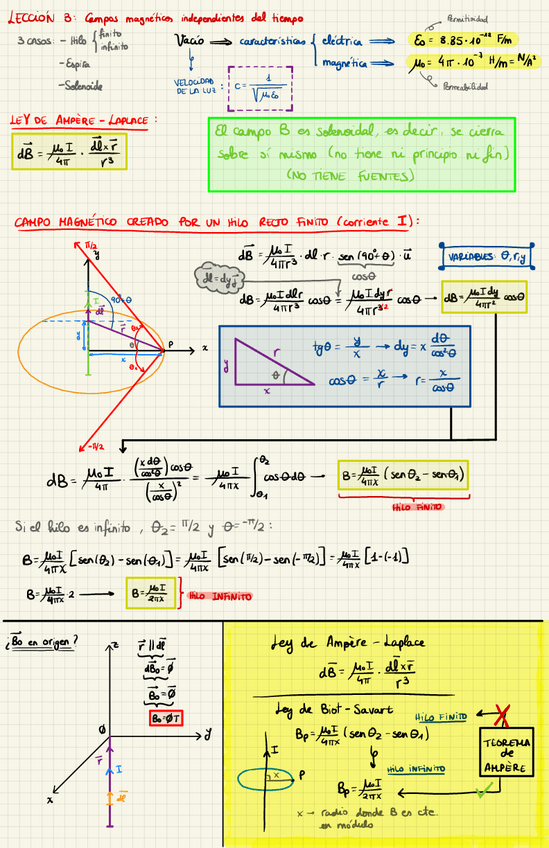 LECCIÓN 3: Campos magnéticos independientes del tiempo
3 CASOS: - Hilo { finito
infinito
- Espira
- Solenoide
Vacío ⇒ características { eléctrica ⇒
magnética ⇒
Permitividad
ε₀ = 8.85·10⁻¹² F/m
μ₀ = 4π·10⁻⁷ H/m = N/A²
Permeabilidad
VELOCIDAD
DE LA LUZ: C = 1/√(μ₀ε₀)
LEY DE AMPÈRE - LAPLACE:
dB⃗ = μ₀I/4π · (dl⃗ x r⃗)/r³
El campo B es solenoidal, es decir, se cierra
sobre sí mismo (no tiene ni principio ni fin)
(NO TIENE FUENTES)
CAMPO MAGNÉTICO CREADO POR UN HILO RECTO FINITO (corriente I):
π/2
y
I
90+θ
dl⃗
r⃗
θ₂
θ
P
x
x
θ₁
-π/2
dB⃗ = μ₀I/4πr³ · dl · r · sen(90°+θ) · u⃗
cosθ
dl⃗ = dy j⃗
VARIABLES: θ, r, y
dB = μ₀I dl r/4πr³ cosθ = μ₀I dy r/4πr³ ² cosθ → dB = μ₀I dy/4πr² cosθ
r
θ
x
tgθ = y/x → dy = x dθ/cos²θ
cosθ = x/r → r = x/cosθ
dB = μ₀I/4π · (x dθ/cos²θ) cosθ/(x/cosθ)² = μ₀I/4πx ∫ θ₁ θ₂ cosθ dθ → B = μ₀I/4πx (senθ₂ - senθ₁)
HILO FINITO
Si el hilo es infinito, θ₂ = π/2 y θ = -π/2:
B = μ₀I/4πx [sen(θ₂) - sen(θ₁)] = μ₀I/4πx [sen(π/2) - sen(-π/2)] = μ₀I/4πx [1-(-1)]
B = μ₀I/4πx · 2 → B = μ₀I/2πx } HILO INFINITO
¿B⃗₀ en origen?
z
r⃗ || dl⃗
dB⃗₀ = 0⃗
B⃗₀ = 0⃗
B₀ = ØT
Ø
y
r⃗
I
x
dl⃗
Ley de Ampère - Laplace
dB⃗ = μ₀I/4π · (dl⃗ x r⃗)/r³
Ley de Biot - Savart
HILO FINITO
Bp = μ₀I/4πx (senθ₂ - senθ₁)
TEOREMA
de
AMPÈRE
I
x
P
HILO INFINITO
Bp = μ₀I/2πx
x → radio donde B es cte.
en módulo